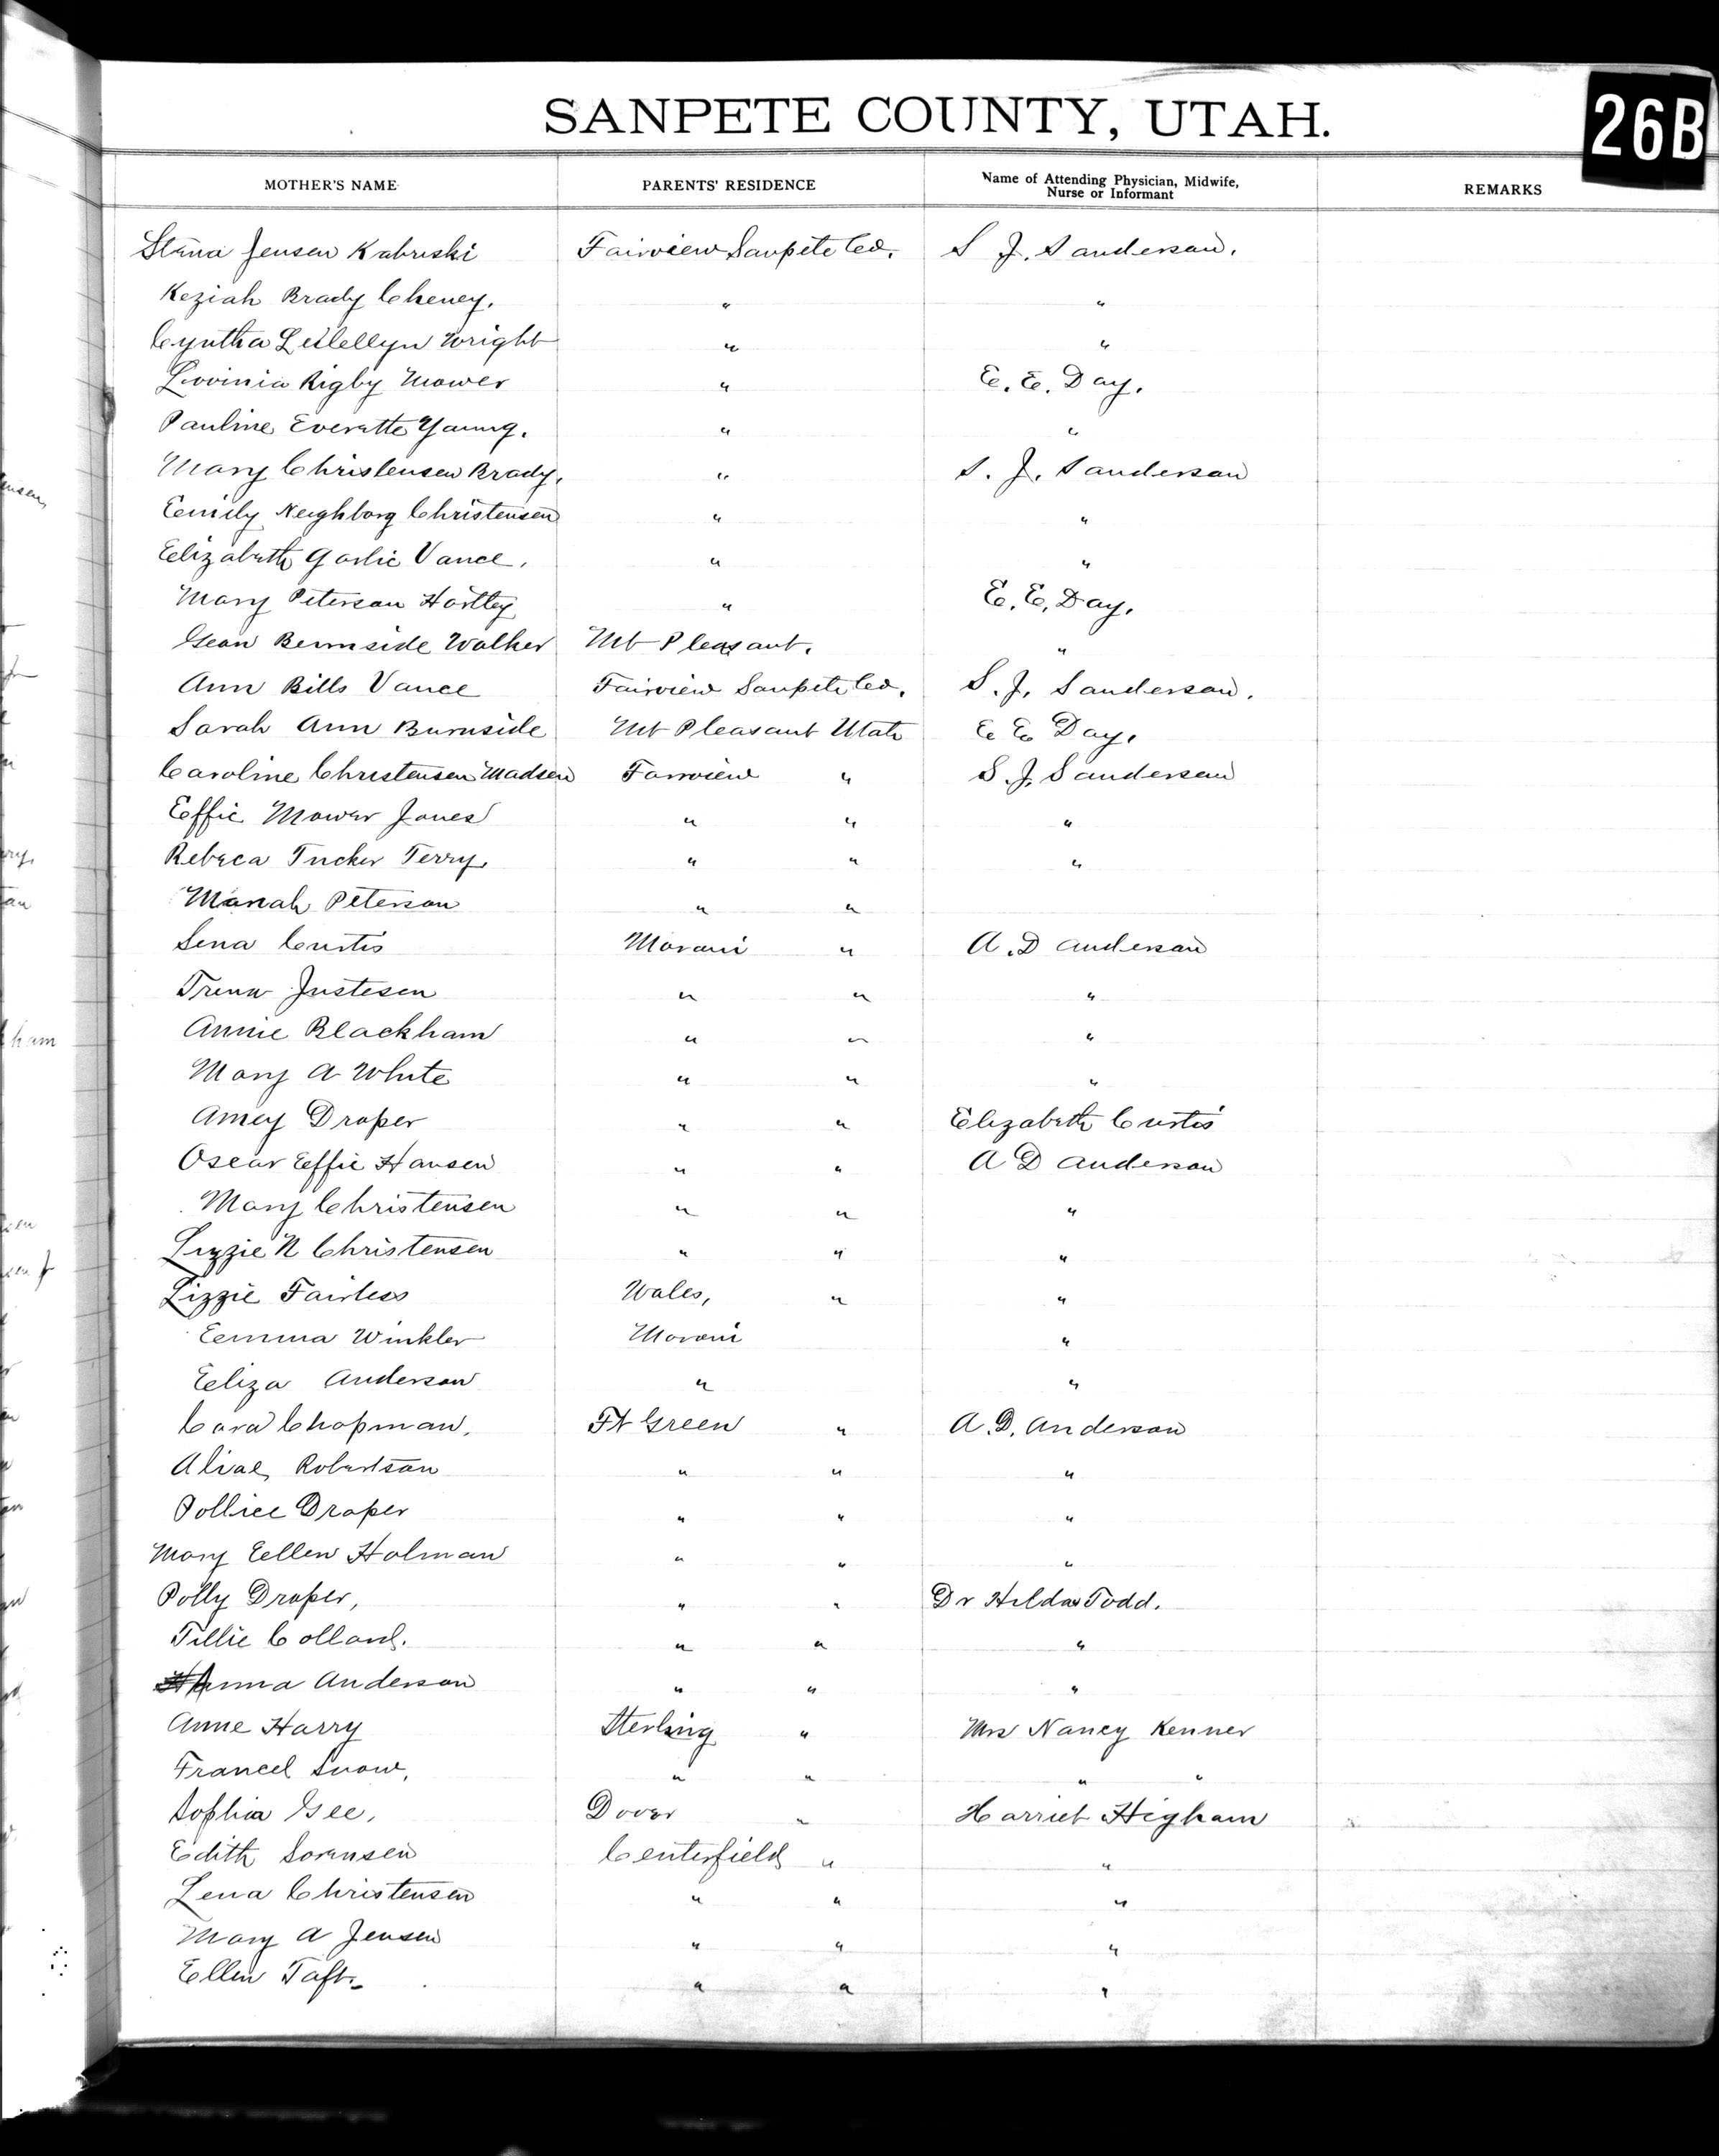 SANPETE COUNTY, UTAH.
26B
MOTHER'S NAME PARENTS' RESIDENCE Name of Attending Physician, Midwife, Nurse or Informant REMARKS
Stena Jensen Kabruski Fairview Sanpete Co. S J. Sanderson.
Keziah Brady Cheney. " "
Cyntha Lewellyn Wright " "
Lovinia Rigby Mower " E. E. Day.
Pauline Everette Young. " "
Mary Christensen Brady. " S. J. Sanderson
Emily Neighborg Christensen " "
Elizabeth Garlic Vance. " "
Mary Peterson Hartley " E. E. Day.
Gean Burnside Walker Mt Pleasant. "
Ann Bills Vance Fairview Sanpete Co. S. J. Sanderson.
Sarah Ann Burnside Mt Pleasant Utah E E Day.
Caroline Christensen Madsen Fairview " S. J. Sanderson
Effie Mower Jones " " "
Rebeca Tucker Terry. " " "
Mariah Peterson " "
Sena Curtis Moroni " A. D Anderson
Trena Justesen " " "
Annie Blackham " " "
Mary A White " " "
Amey Draper " " Elizabeth Curtis
Oscar Effie Hansen " " A D Anderson
Mary Christensen " " "
Lizzie N Christensen " " "
Lizzie Fairless Wales, " "
Emma Winkler Moroni "
Eliza Anderson " "
Cora Chapman. Ft Green " A. D. Anderson
Robertson " " "
Draper " " "
Mary Ellen Holman " " "
Polly Draper, " " Dr Hilda Todd.
Tillie Collard. " " "
Anna Anderson " " "
Anne Harry Sterling " Mrs Nancy Kenner
Snow, " " " "
Sophia Gee, Dover " Harriet Higham
Edith Sorensen Centerfield " "
Lena Christensen " " "
Mary A Jensen " " "
Ellen Taft. " " "